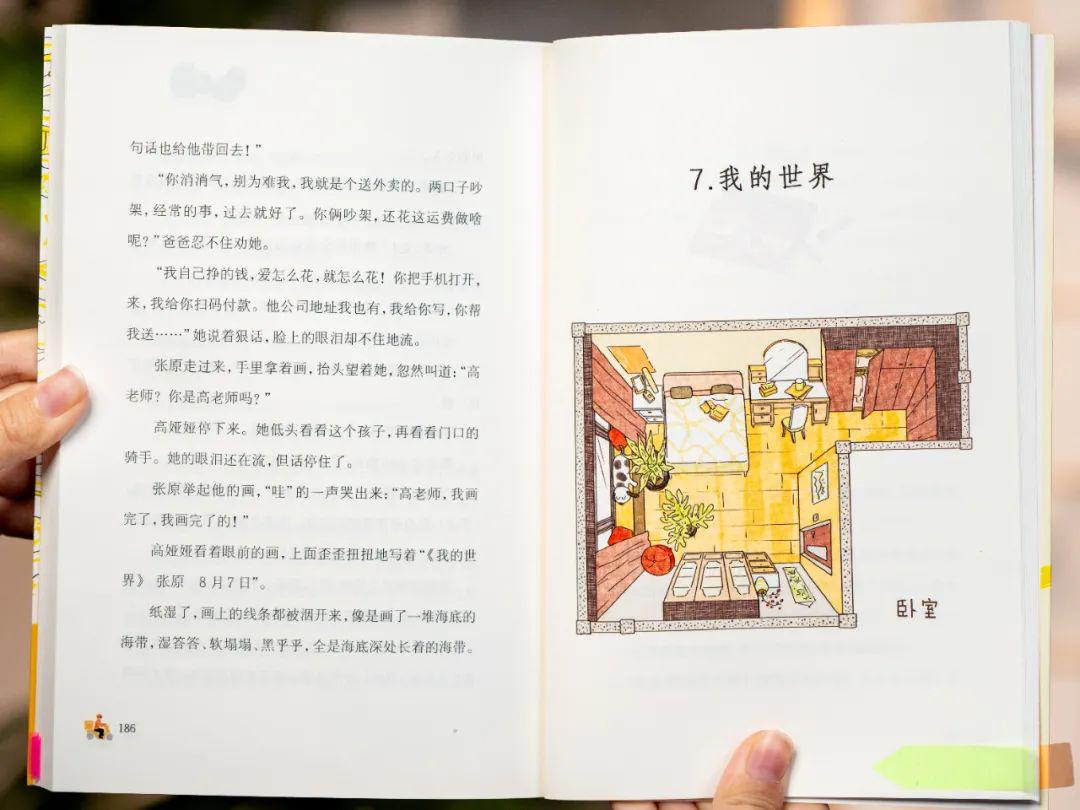 句话也给他带回去！”
“你消消气，别为难我，我就是个送外卖的。两口子吵
架，经常的事，过去就好了。你俩吵架，还花这运费做啥
呢？”爸爸忍不住劝她。
“我自己挣的钱，爱怎么花，就怎么花！你把手机打开，
来，我给你扫码付款。他公司地址我也有，我给你写，你帮
我送……”她说着狠话，脸上的眼泪却不住地流。
张原走过来，手里拿着画，抬头望着她，忽然叫道：“高
老师？你是高老师吗？”
高娅娅停下来。她低头看看这个孩子，再看看门口的
骑手。她的眼泪还在流，但话停住了。
张原举起他的画，“哇”的一声哭出来：“高老师，我画
完了，我画完了的！”
高娅娅看着眼前的画，上面歪歪扭扭地写着“《我的世
界》 张原 8月7日”。
纸湿了，画上的线条都被洇开来，像是画了一堆海底的
海带，湿答答、软塌塌、黑乎乎，全是海底深处长着的海带。
186
7.我的世界
卧室